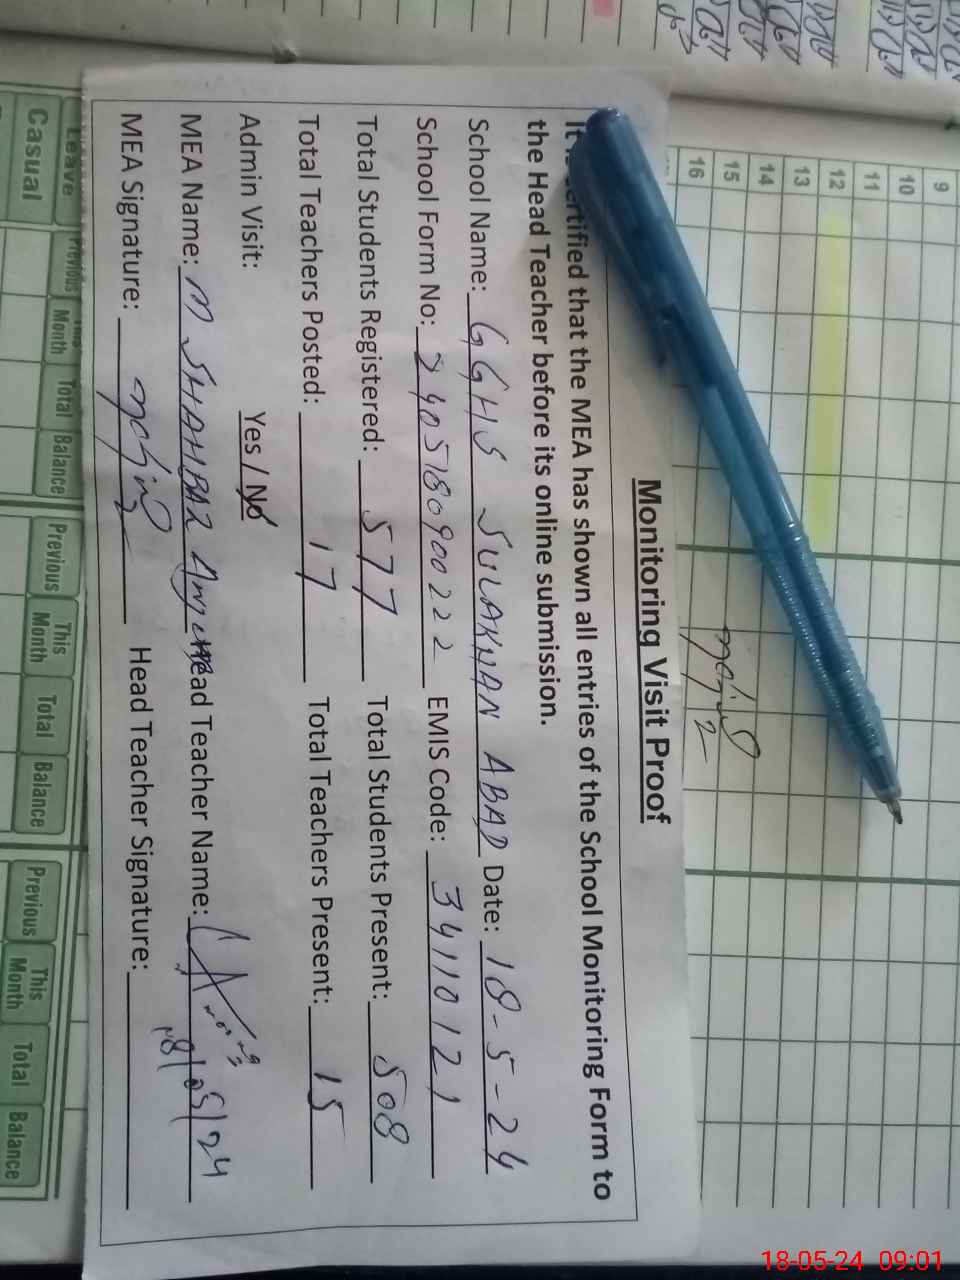 Monitoring Visit Proof
It is certified that the MEA has shown all entries of the School Monitoring Form to
the Head Teacher before its online submission.
School Name: GGHS SULAKHAN ABAD Date: 18-5-24
School Form No: 2405180900222 EMIS Code: 34110121
Total Students Registered: 577 Total Students Present: 508
Total Teachers Posted: 17 Total Teachers Present: 15
Admin Visit: Yes / No
MEA Name: M SHAHBAZ Head Teacher Name:
18/05/24
MEA Signature: Head Teacher Signature:
9
10
11
12
13
14
15
16
Leave Previous This Month Total Balance Previous This Month Total Balance Previous This Month Total Balance
Casual
18-05-24 09:01